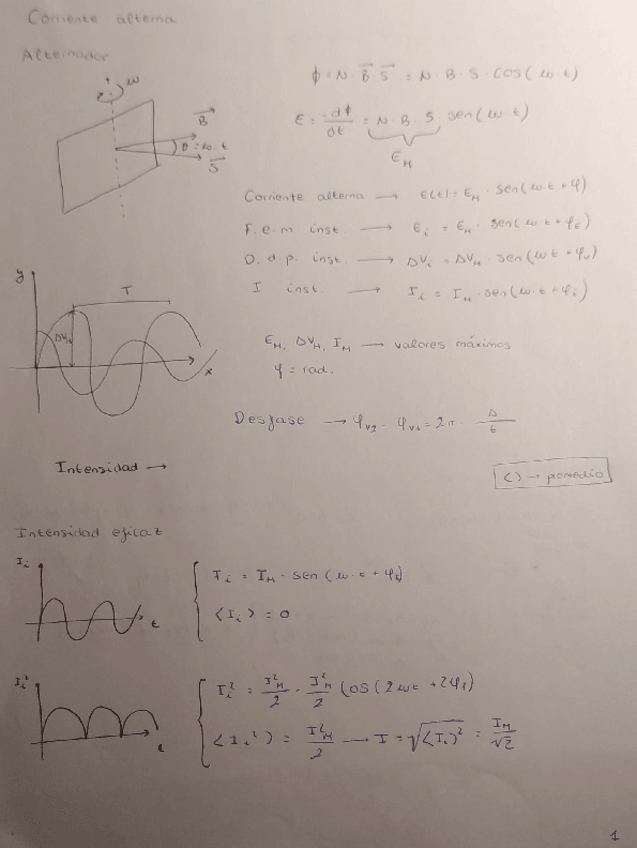 Corriente alterna
Alternador
ω
B⃗
θ = ω·t
S⃗
ϕ = N·B⃗·S⃗ = N·B·S·cos(ω·t)
ε = -dϕ/dt = N·B·S·sen(ω·t)
ε_M
Corriente alterna → ε(t) = ε_M · sen(ωt + φ)
F.e.m inst. → ε_i = ε_M · sen(ωt + φ_ε)
D.d.p. inst. → ΔV_i = ΔV_M · sen(ωt + φ_v)
I inst. → I_i = I_M · sen(ω·t + φ_i)
y
T
ΔV_M
x
ε_M, ΔV_M, I_M → valores máximos
φ = rad.
Desfase → φ_v2 - φ_v1 = 2π · Δ/t
Intensidad →
⟨⟩ → promedio
Intensidad eficaz
I_i
t
I_i = I_M · sen(ω·t + φ_i)
⟨I_i⟩ = 0
I_i²
t
I_i² = I²_M/2 - I²_M/2 cos(2ωt + 2φ_i)
⟨I_i²⟩ = I²_M/2 → I = √⟨I_i⟩² = I_M/√2
1